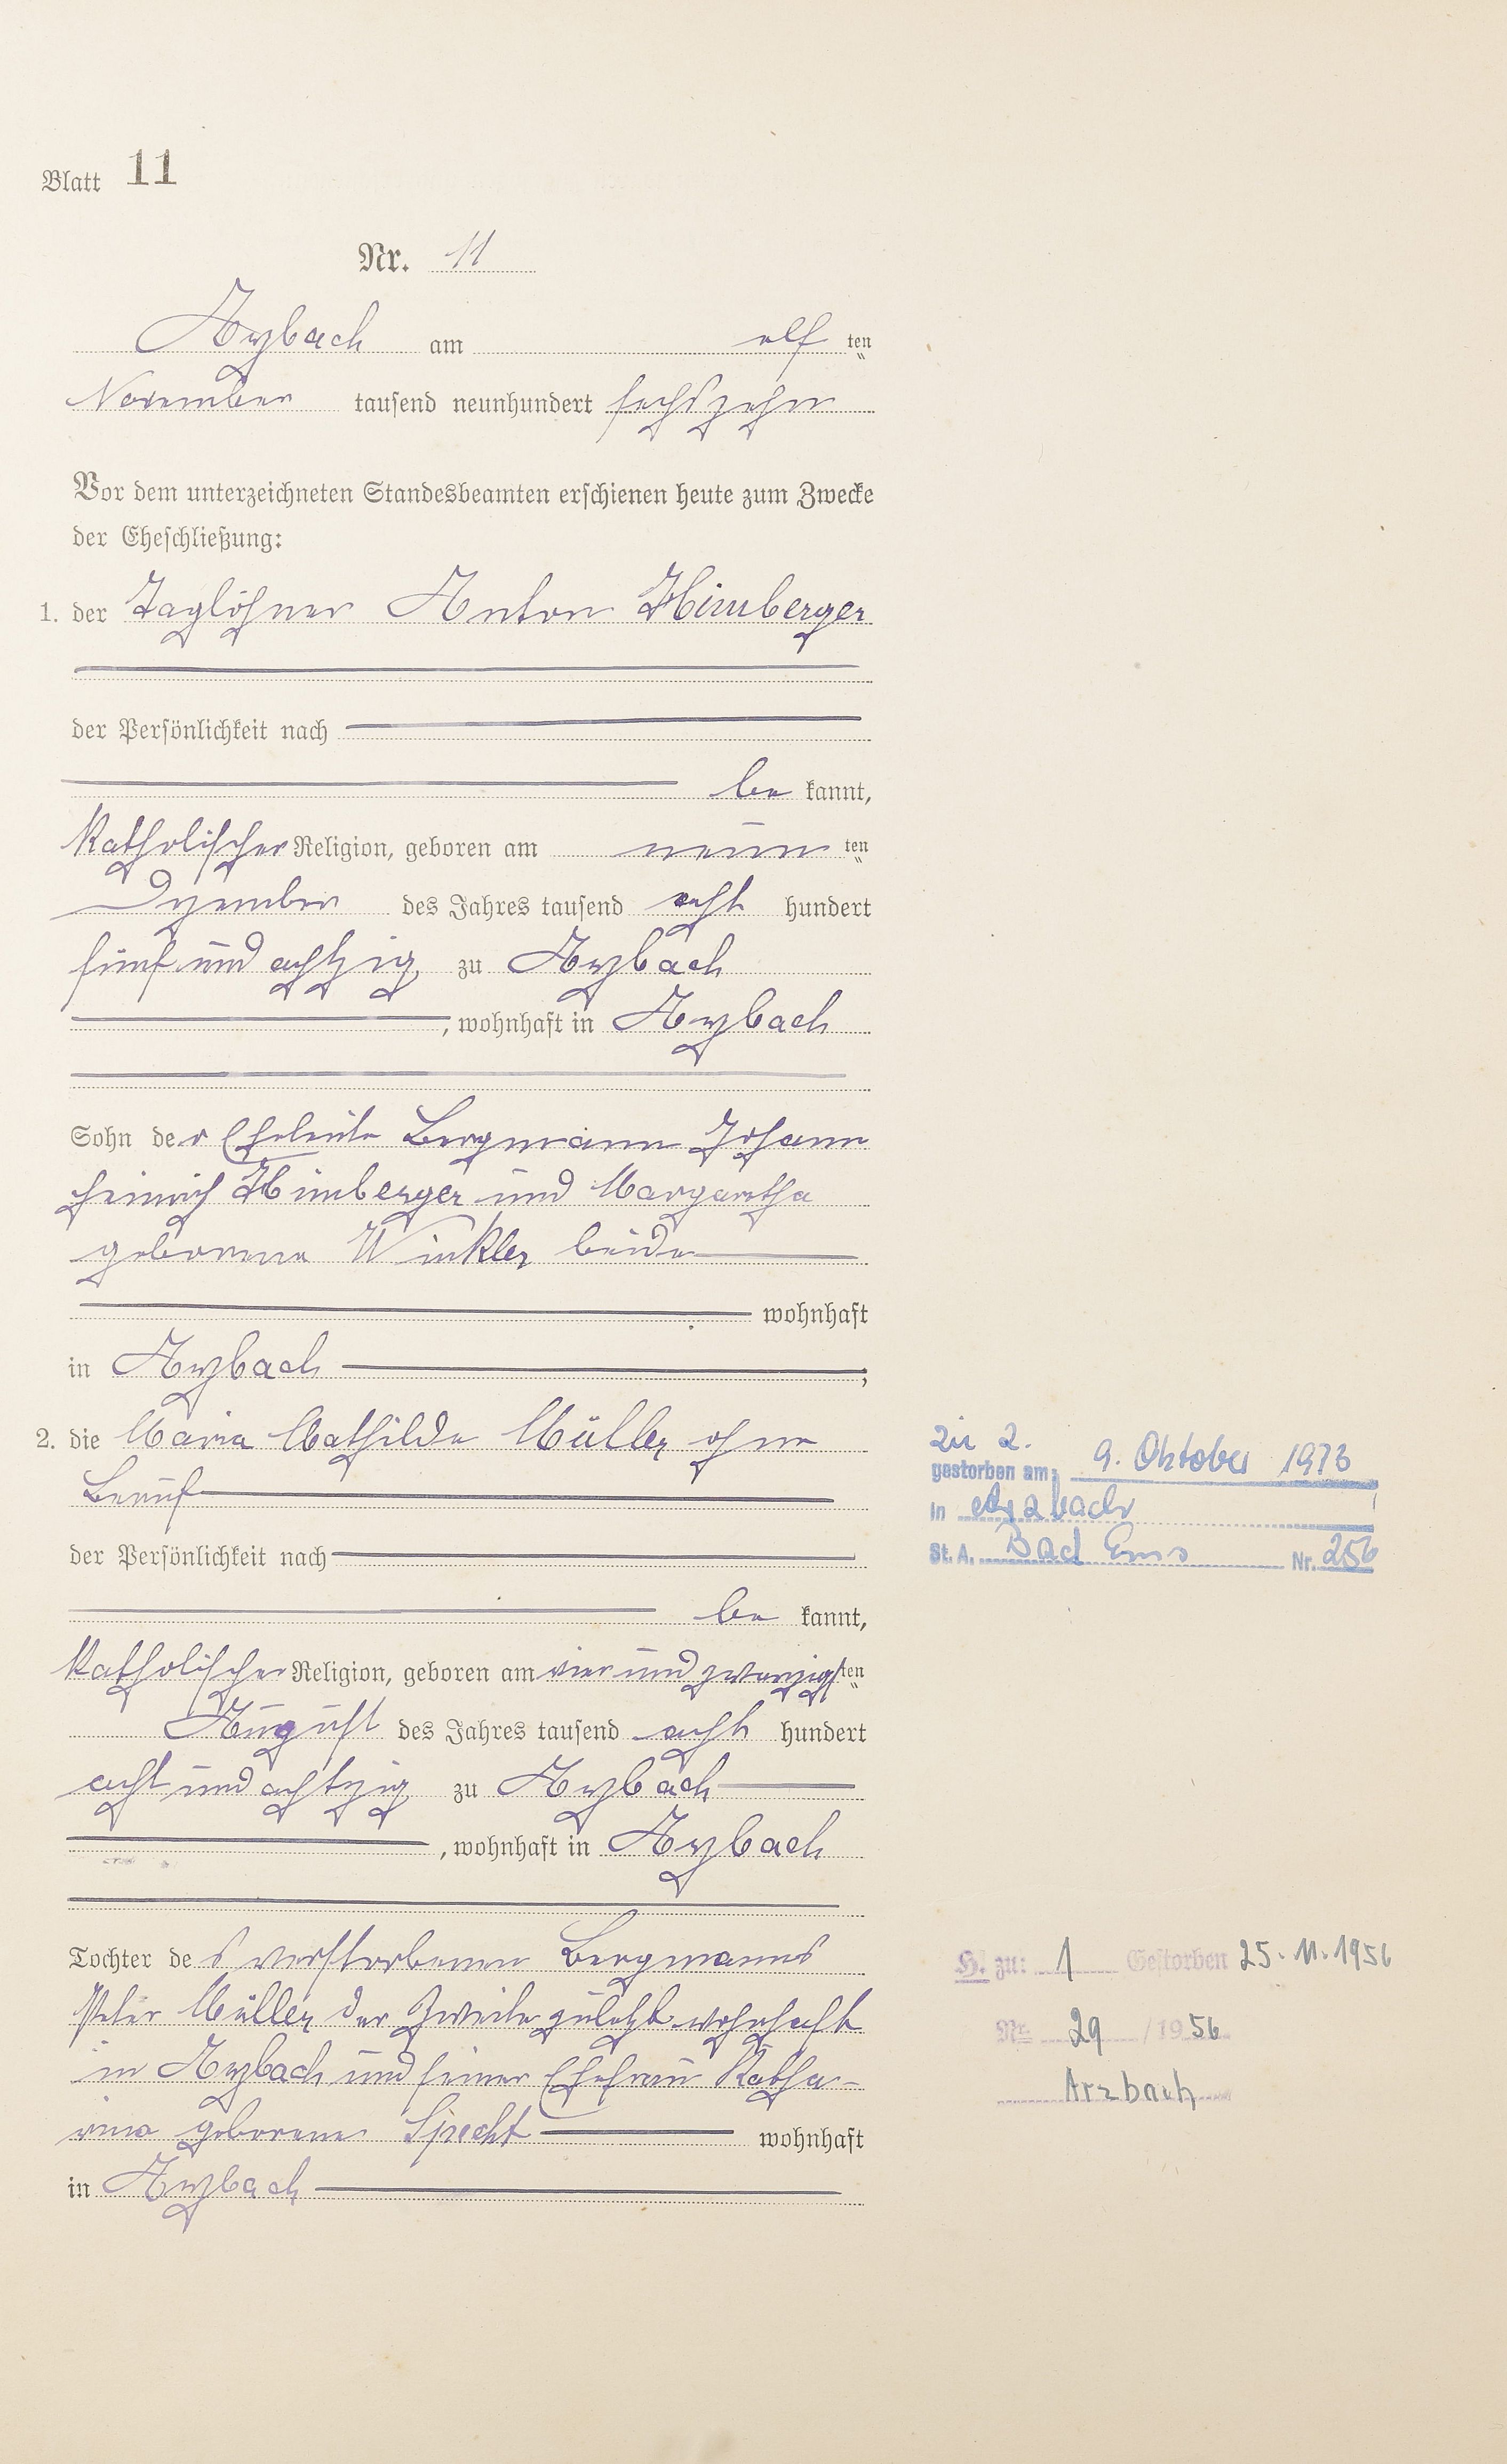 Blatt 11
Nr. 11
Arzbach am elf ten
November tausend neunhundert sechszehn
Vor dem unterzeichneten Standesbeamten erschienen heute zum Zwecke
der Eheschließung:
1. der Taglöhner Anton Himberger
der Persönlichkeit nach
be kannt,
katholischer Religion, geboren am neun ten
Dezember des Jahres tausend acht hundert
fünf und achtzig zu Arzbach
, wohnhaft in Arzbach
Sohn der Eheleute Bergmann Johann
Heinrich Himberger und Margaretha
geborene Winkler beide
wohnhaft
in Arzbach ;
2. die Maria Mathilde Müller ohne
Beruf
der Persönlichkeit nach
be kannt,
katholischer Religion, geboren am vier und zwanzigsten
August des Jahres tausend acht hundert
acht und achtzig zu Arzbach
, wohnhaft in Arzbach
Tochter des verstorbenen Bergmanns
Peter Müller der Zweite zuletzt wohnhaft
in Arzbach und seiner Ehefrau Katha-
rina geborene Specht wohnhaft
in Arzbach
zu 2.
gestorben am: 9. Oktober 1973
in Arzbach
St. A. Bad Ems Nr. 256
H. zu: 1 Gestorben 25.11.1956
Nr. 29 /1956
Arzbach